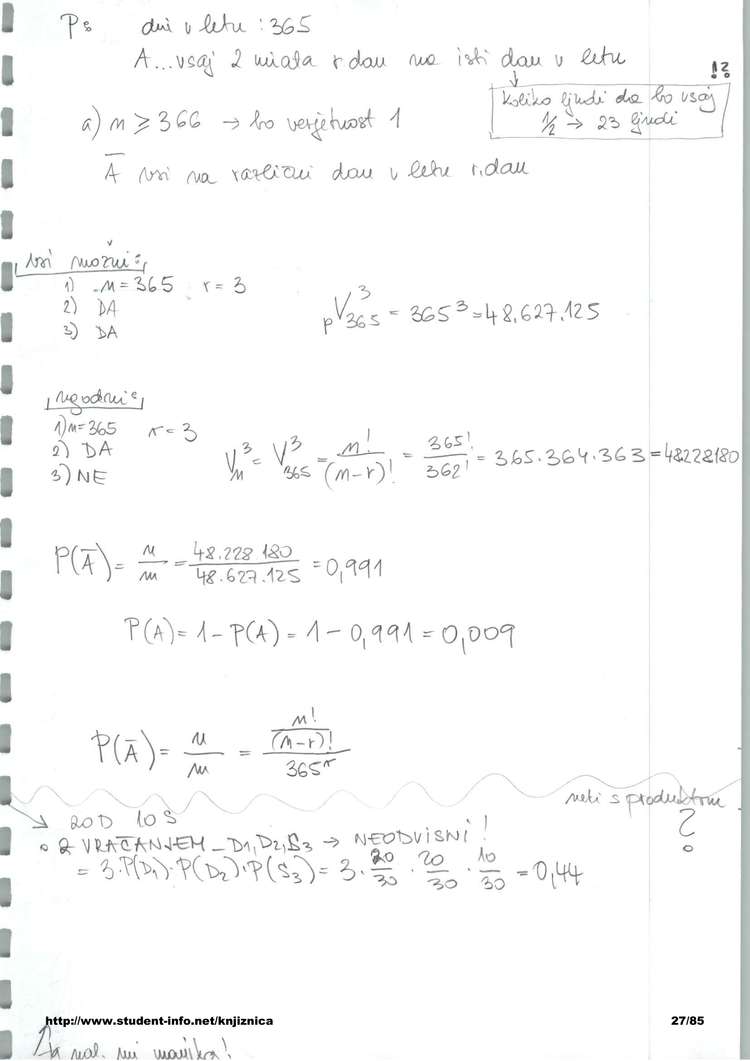 P: dni v letu : 365
A...vsaj 2 imata r.dan na isti dan v letu
!?
Koliko ljudi da bo vsaj
1/2 → 23 ljudi
a) n ≥ 366 → bo verjetnost 1
A̅ vsi na različni dan v letu r.dan
vsi možni:
1) n=365 r=3
2) DA
3) DA
pV³₃₆₅ = 365³ = 48.627.125
ugodni:
1) n=365 r=3
2) DA
3) NE
Vₙ³ = V³₃₆₅ = n!/(n-r)! = 365!/362! = 365.364.363 = 48228180
P(A̅) = m/n = 48.228 180/48.627.125 = 0,991
P(A) = 1 - P(A) = 1 - 0,991 = 0,009
P(A̅) = m/n = (n!/(n-r)!)/365ʳ
s produktom
?
→ 20D 10S
• Z VRAČANJEM - D1, D2, S3 → NEODVISNI!
= 3.P(D₁).P(D₂).P(S₃) = 3. 20/30 . 20/30 . 10/30 = 0,44
http://www.student-info.net/knjiznica 27/85